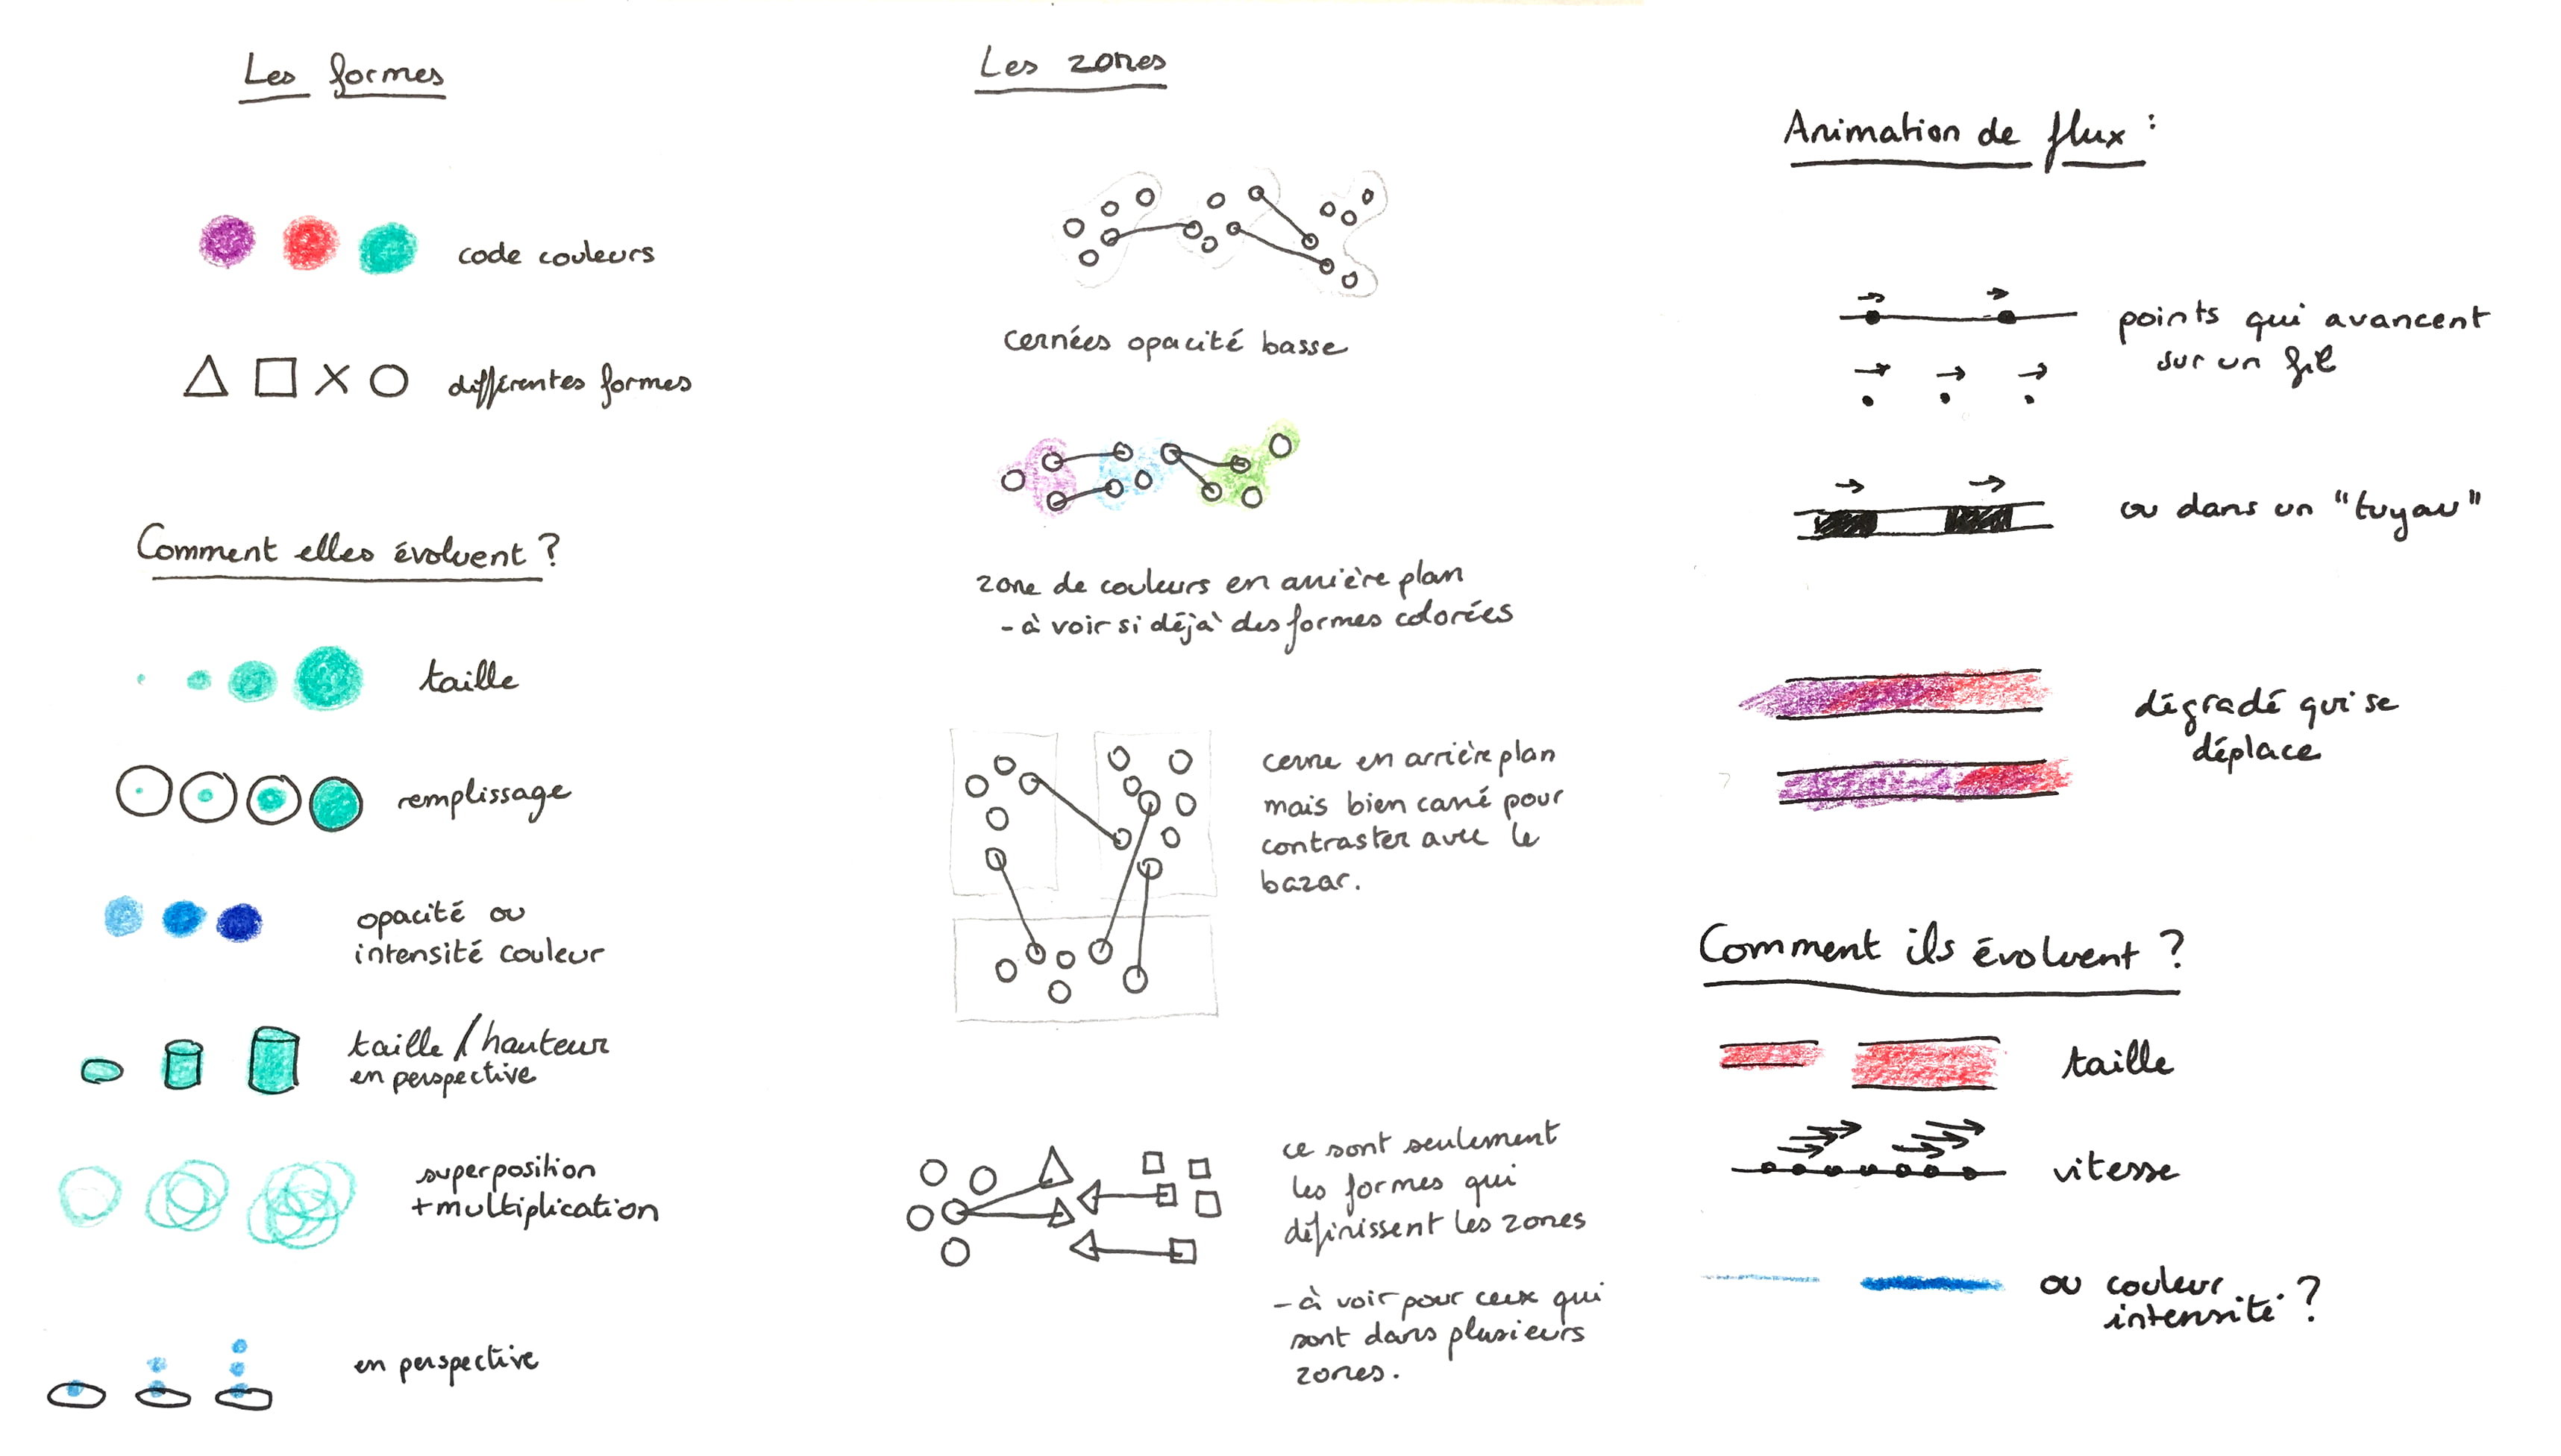 Les formes
code couleurs
différentes formes
Comment elles évoluent ?
taille
remplissage
opacité ou
intensité couleur
taille / hauteur
en perspective
superposition
+ multiplication
en perspective
Les zones
cernées opacité basse
zone de couleurs en arrière plan
- à voir si déjà des formes colorées
cerne en arrière plan
mais bien carré pour
contraster avec le
bazar.
ce sont seulement
les formes qui
définissent les zones
- à voir pour ceux qui
sont dans plusieurs
zones.
Animation de flux :
points qui avancent
sur un fil
ou dans un "tuyau"
dégradé qui se
déplace
Comment ils évoluent ?
taille
vitesse
ou couleur
intensité ?